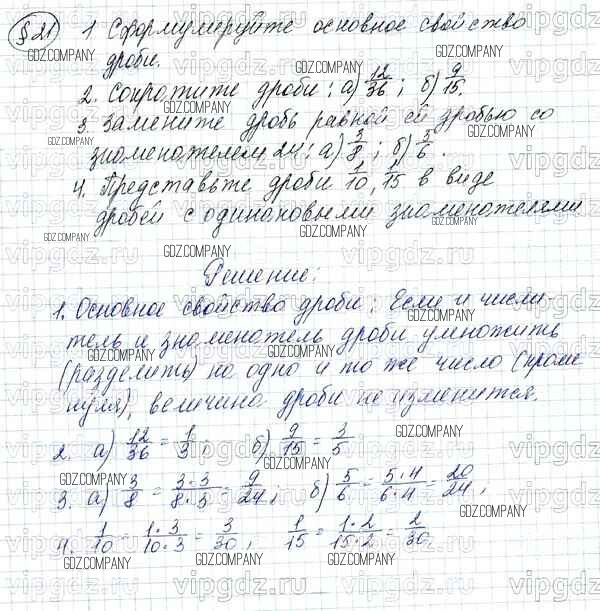 §21 1 Сформулируйте основное свойство
дроби.
2. Сократите дроби: а) 12/36; б) 9/15.
3. Замените дробь равной ей дробью со
знаменателем 24: а) 3/8; б) 5/6.
4. Представьте дроби 1/10, 1/15 в виде
дробей с одинаковыми знаменателями.
Решение:
1. Основное свойство дроби: Если и числи-
тель и знаменатель дроби умножить
(разделить) на одно и то же число (кроме
нуля), величина дроби не изменится.
2. а) 12/36 = 1/3; б) 9/15 = 3/5
3. а) 3/8 = 3·3/8·3 = 9/24; б) 5/6 = 5·4/6·4 = 20/24;
4. 1/10 = 1·3/10·3 = 3/30, 1/15 = 1·2/15·2 = 2/30.
GDZ.COMPANY
vipgdz.ru